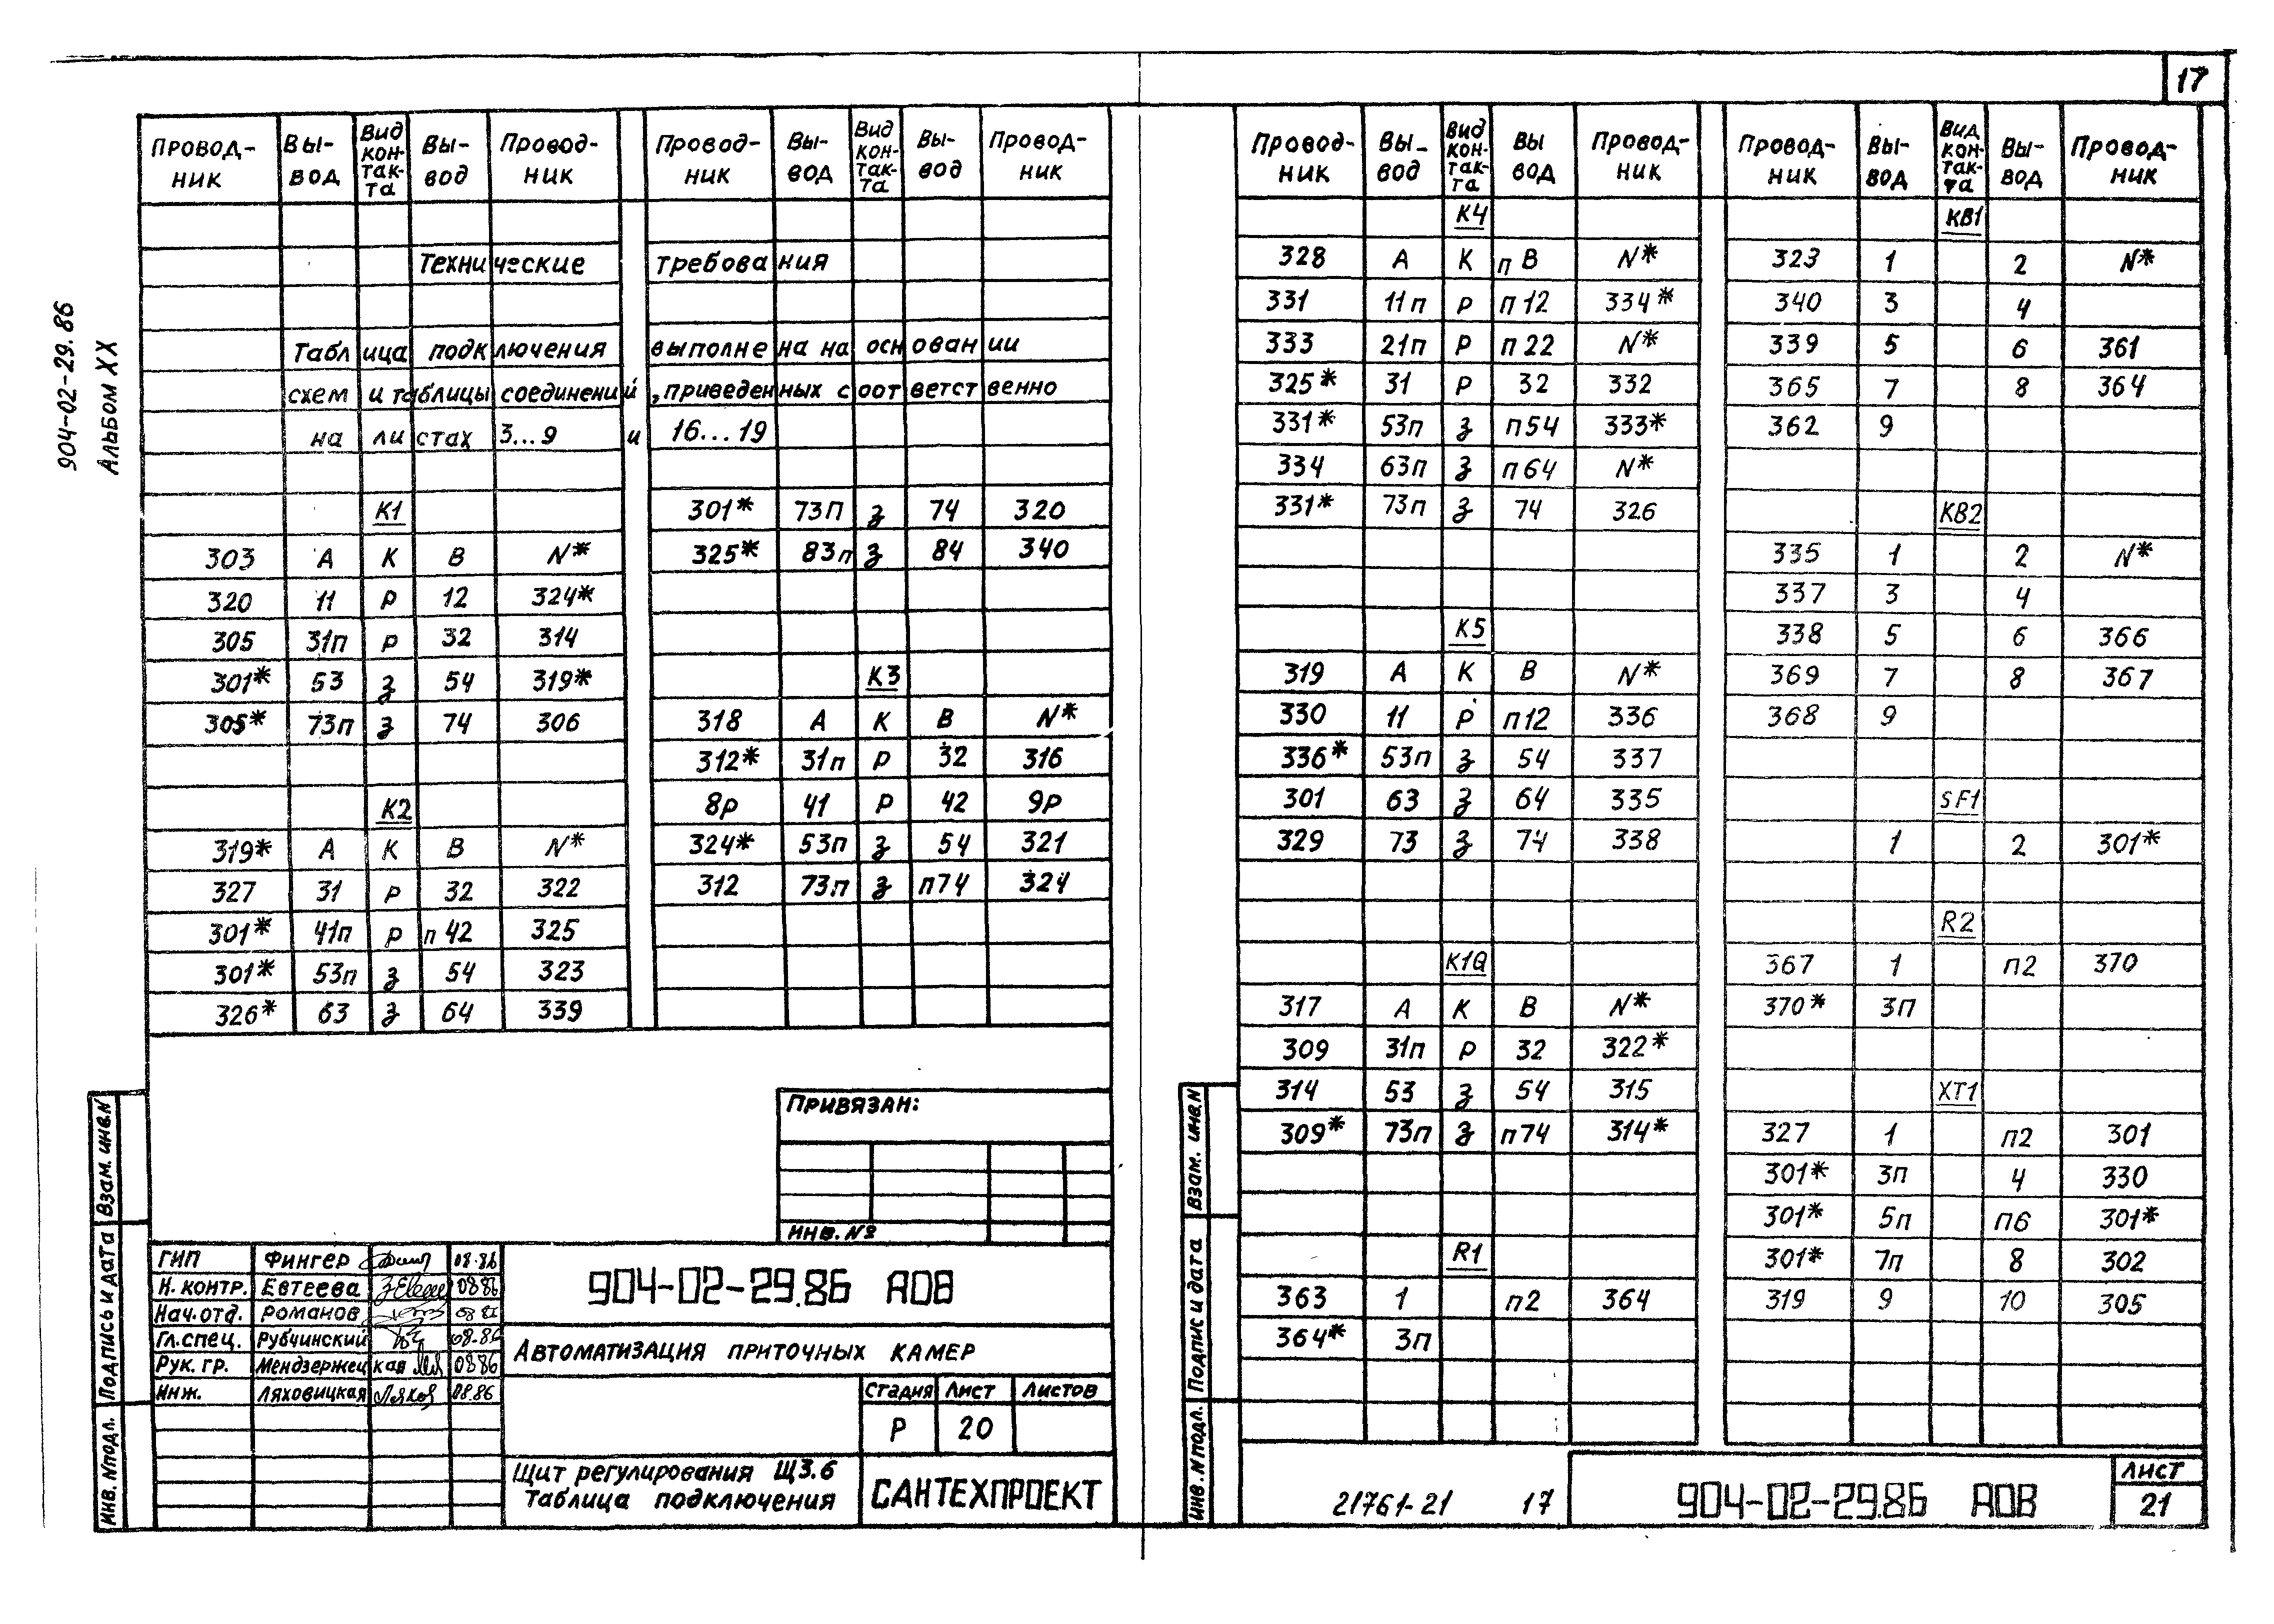 17
904-02-29.86
АЛЬБОМ XX
Провод-ник Вы-вод Вид кон-так-та Вы-вод Провод-ник
Технические требования
Таблица подключения выполнена на основании
схем и таблицы соединений, приведенных соответственно
на листах 3...9 и 16...19
К1
303 А К В N*
320 11 р 12 324*
305 31п р 32 314
301* 53 з 54 319*
305* 73п з 74 306
К2
319* А К В N*
327 31 р 32 322
301* 41п р п42 325
301* 53п з 54 323
326* 63 з 64 339
Провод-ник Вы-вод Вид кон-так-та Вы-вод Провод-ник
301* 73п з 74 320
325* 83п з 84 340
К3
318 А К В N*
312* 31п р 32 316
8р 41 р 42 9р
324* 53п з 54 321
312 73п з п74 324
ПРИВЯЗАН:
ИНВ. №
ГИП Фингер 08.86
Н. контр. Евтеева 08.86
Нач. отд. Романов 08.86
Гл. спец. Рубчинский 08.86
Рук. гр. Мендзержецкая 08.86
Инж. Ляховицкая 08.86
904-02-29.86 АОВ
Автоматизация приточных камер
Стадия Лист Листов
Р 20
Щит регулирования Щ3.6
Таблица подключения
САНТЕХПРОЕКТ
Инв. N подл. Подпись и дата Взам. инв. N
Провод-ник Вы-вод Вид кон-так-та Вы вод Провод-ник
К4
328 А К п В N*
331 11п р п12 334*
333 21п р п22 N*
325* 31 р 32 332
331* 53п з п54 333*
334 63п з п64 N*
331* 73п з 74 326
К5
319 А К В N*
330 11 р п12 336
336* 53п з 54 337
301 63 з 64 335
329 73 з 74 338
К1Q
317 А К В N*
309 31п р 32 322*
314 53 з 54 315
309* 73п з п74 314*
R1
363 1 п2 364
364* 3п
Провод-ник Вы-вод Вид кон-так-та Вы-вод Провод-ник
КВ1
323 1 2 N*
340 3 4
339 5 6 361
365 7 8 364
362 9
КВ2
335 1 2 N*
337 3 4
338 5 6 366
369 7 8 367
368 9
SF1
1 2 301*
R2
367 1 п2 370
370* 3п
XT1
327 1 п2 301
301* 3п 4 330
301* 5п п6 301*
301* 7п 8 302
319 9 10 305
Инв. N подл. Подпись и дата Взам. инв. N
21761-21 17
904-02-29.86 АОВ
Лист
21